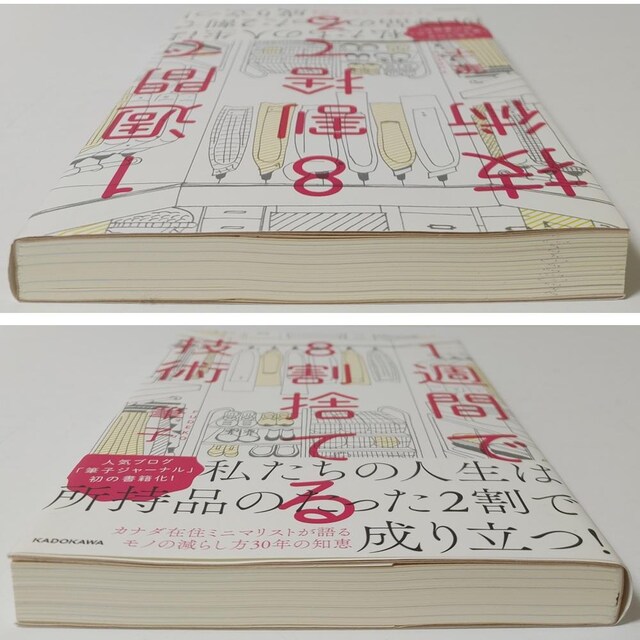 1週間で
8割捨てる
技術
1週間で
8割捨てる
技術
筆子
人気ブログ
「筆子ジャーナル」
初の書籍化!
私たちの人生は
所持品のたった2割で
成り立つ!
カナダ在住ミニマリストが語る
モノの減らし方30年の知恵
KADOKAWA